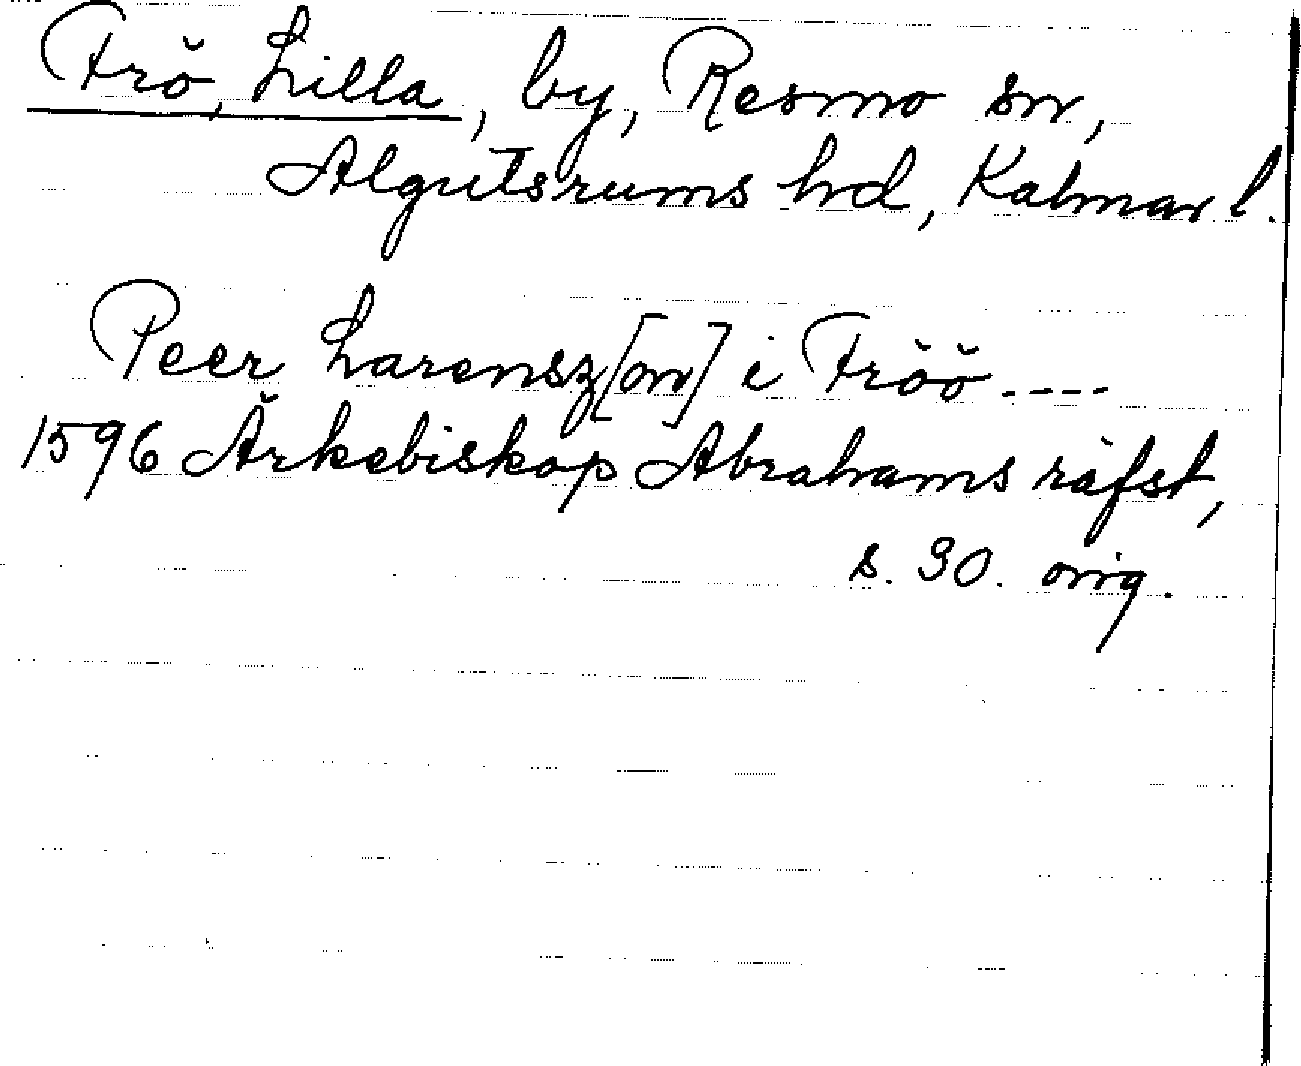 Frö, Lilla, by, Resmo sn,
Algutsrums hd, Kalmar l.
Peer Larensz[on] i Fröö ----
1596 Ärkebiskop Abrahams räfst,
s. 90. orig.